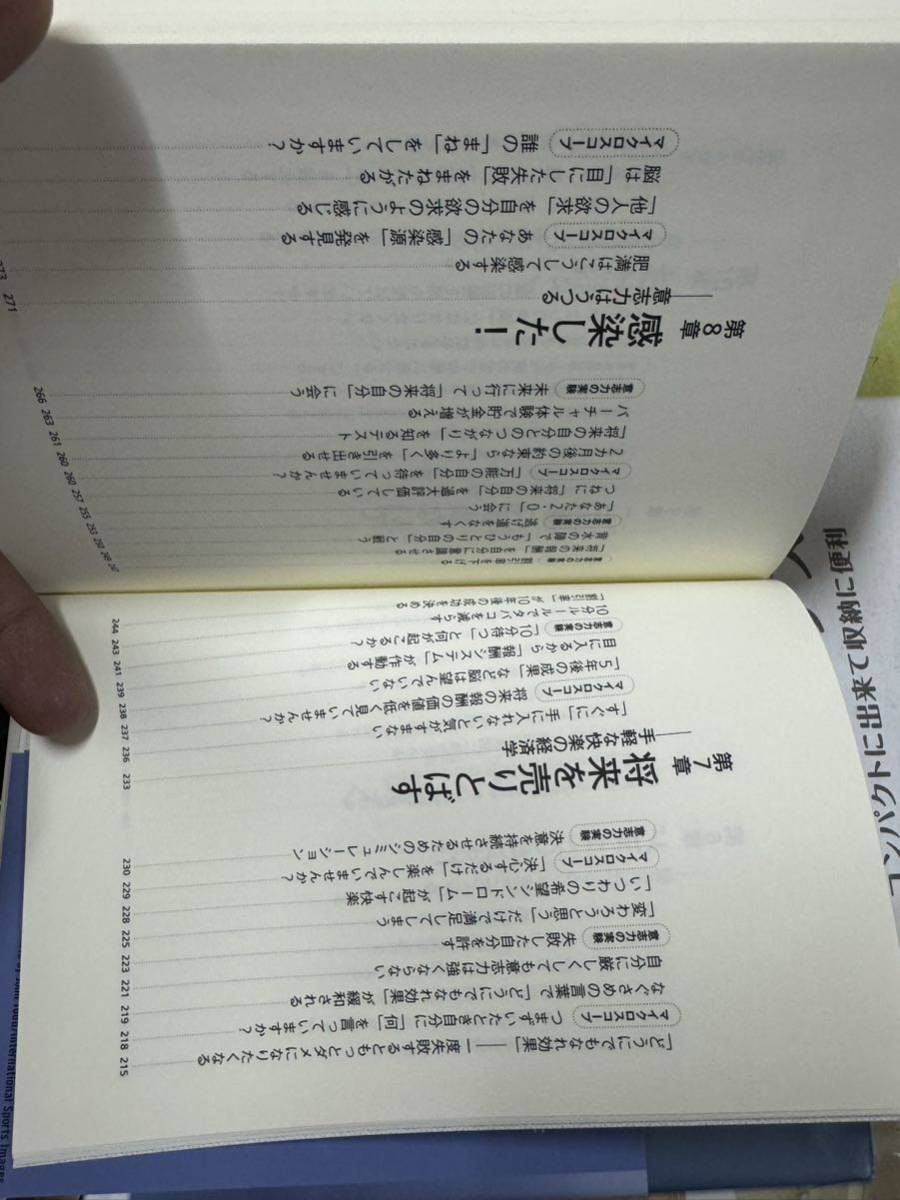 「どうにでもなれ効果」──一度失敗するともっとダメになりたくなる 215
マイクロスコープ つまずいたとき自分に「何」を言っていますか? 218
なぐさめの言葉で「どうにでもなれ効果」が緩和される 219
自分に厳しくしても意志力は強くならない 221
意志力の実験 失敗した自分を許す 223
「変わろうと思う」だけで満足してしまう 225
「いつわりの希望シンドローム」が起こす快楽 228
マイクロスコープ 「決心するだけ」を楽しんでいませんか? 229
意志力の実験 決意を持続させるためのシミュレーション 230
第7章 将来を売りとばす
──手軽な快楽の経済学 233
「すぐに」手に入れないと気がすまない 236
マイクロスコープ 将来の報酬の価値を低く見ていませんか? 237
「5年後の成果」など脳は望んでいない 238
目に入るから「報酬システム」が作動する 239
意志力の実験 「10分待つ」と何が起こるか? 241
10分ルールでタバコを減らす 243
「割引率」が10年後の成功を決める 244
意志力の実験 割引率を下げる 247
「将来の報酬」を自分に意識させる 249
背水の陣で「もうひとりの自分」と闘う 250
意志力の実験 逃げ道をなくす 253
「あなた2・0」に会う 255
つねに「将来の自分」を過大評価している 257
マイクロスコープ 「万能の自分」を待っていませんか? 260
2カ月後の約束なら「より多く」を引き出せる 260
「将来の自分とのつながり」を知るテスト 261
バーチャル体験で貯金が増える 263
意志力の実験 未来に行って「将来の自分」に会う 266
第8章 感染した!
──意志力はうつる 271
肥満はこうして感染する 273
マイクロスコープ あなたの「感染源」を発見する
「他人の欲求」を自分の欲求のように感じる
脳は「目にした失敗」をまねたがる
マイクロスコープ 誰の「まね」をしていますか?
コンパクトに出来て収納に便利
International Sports Images